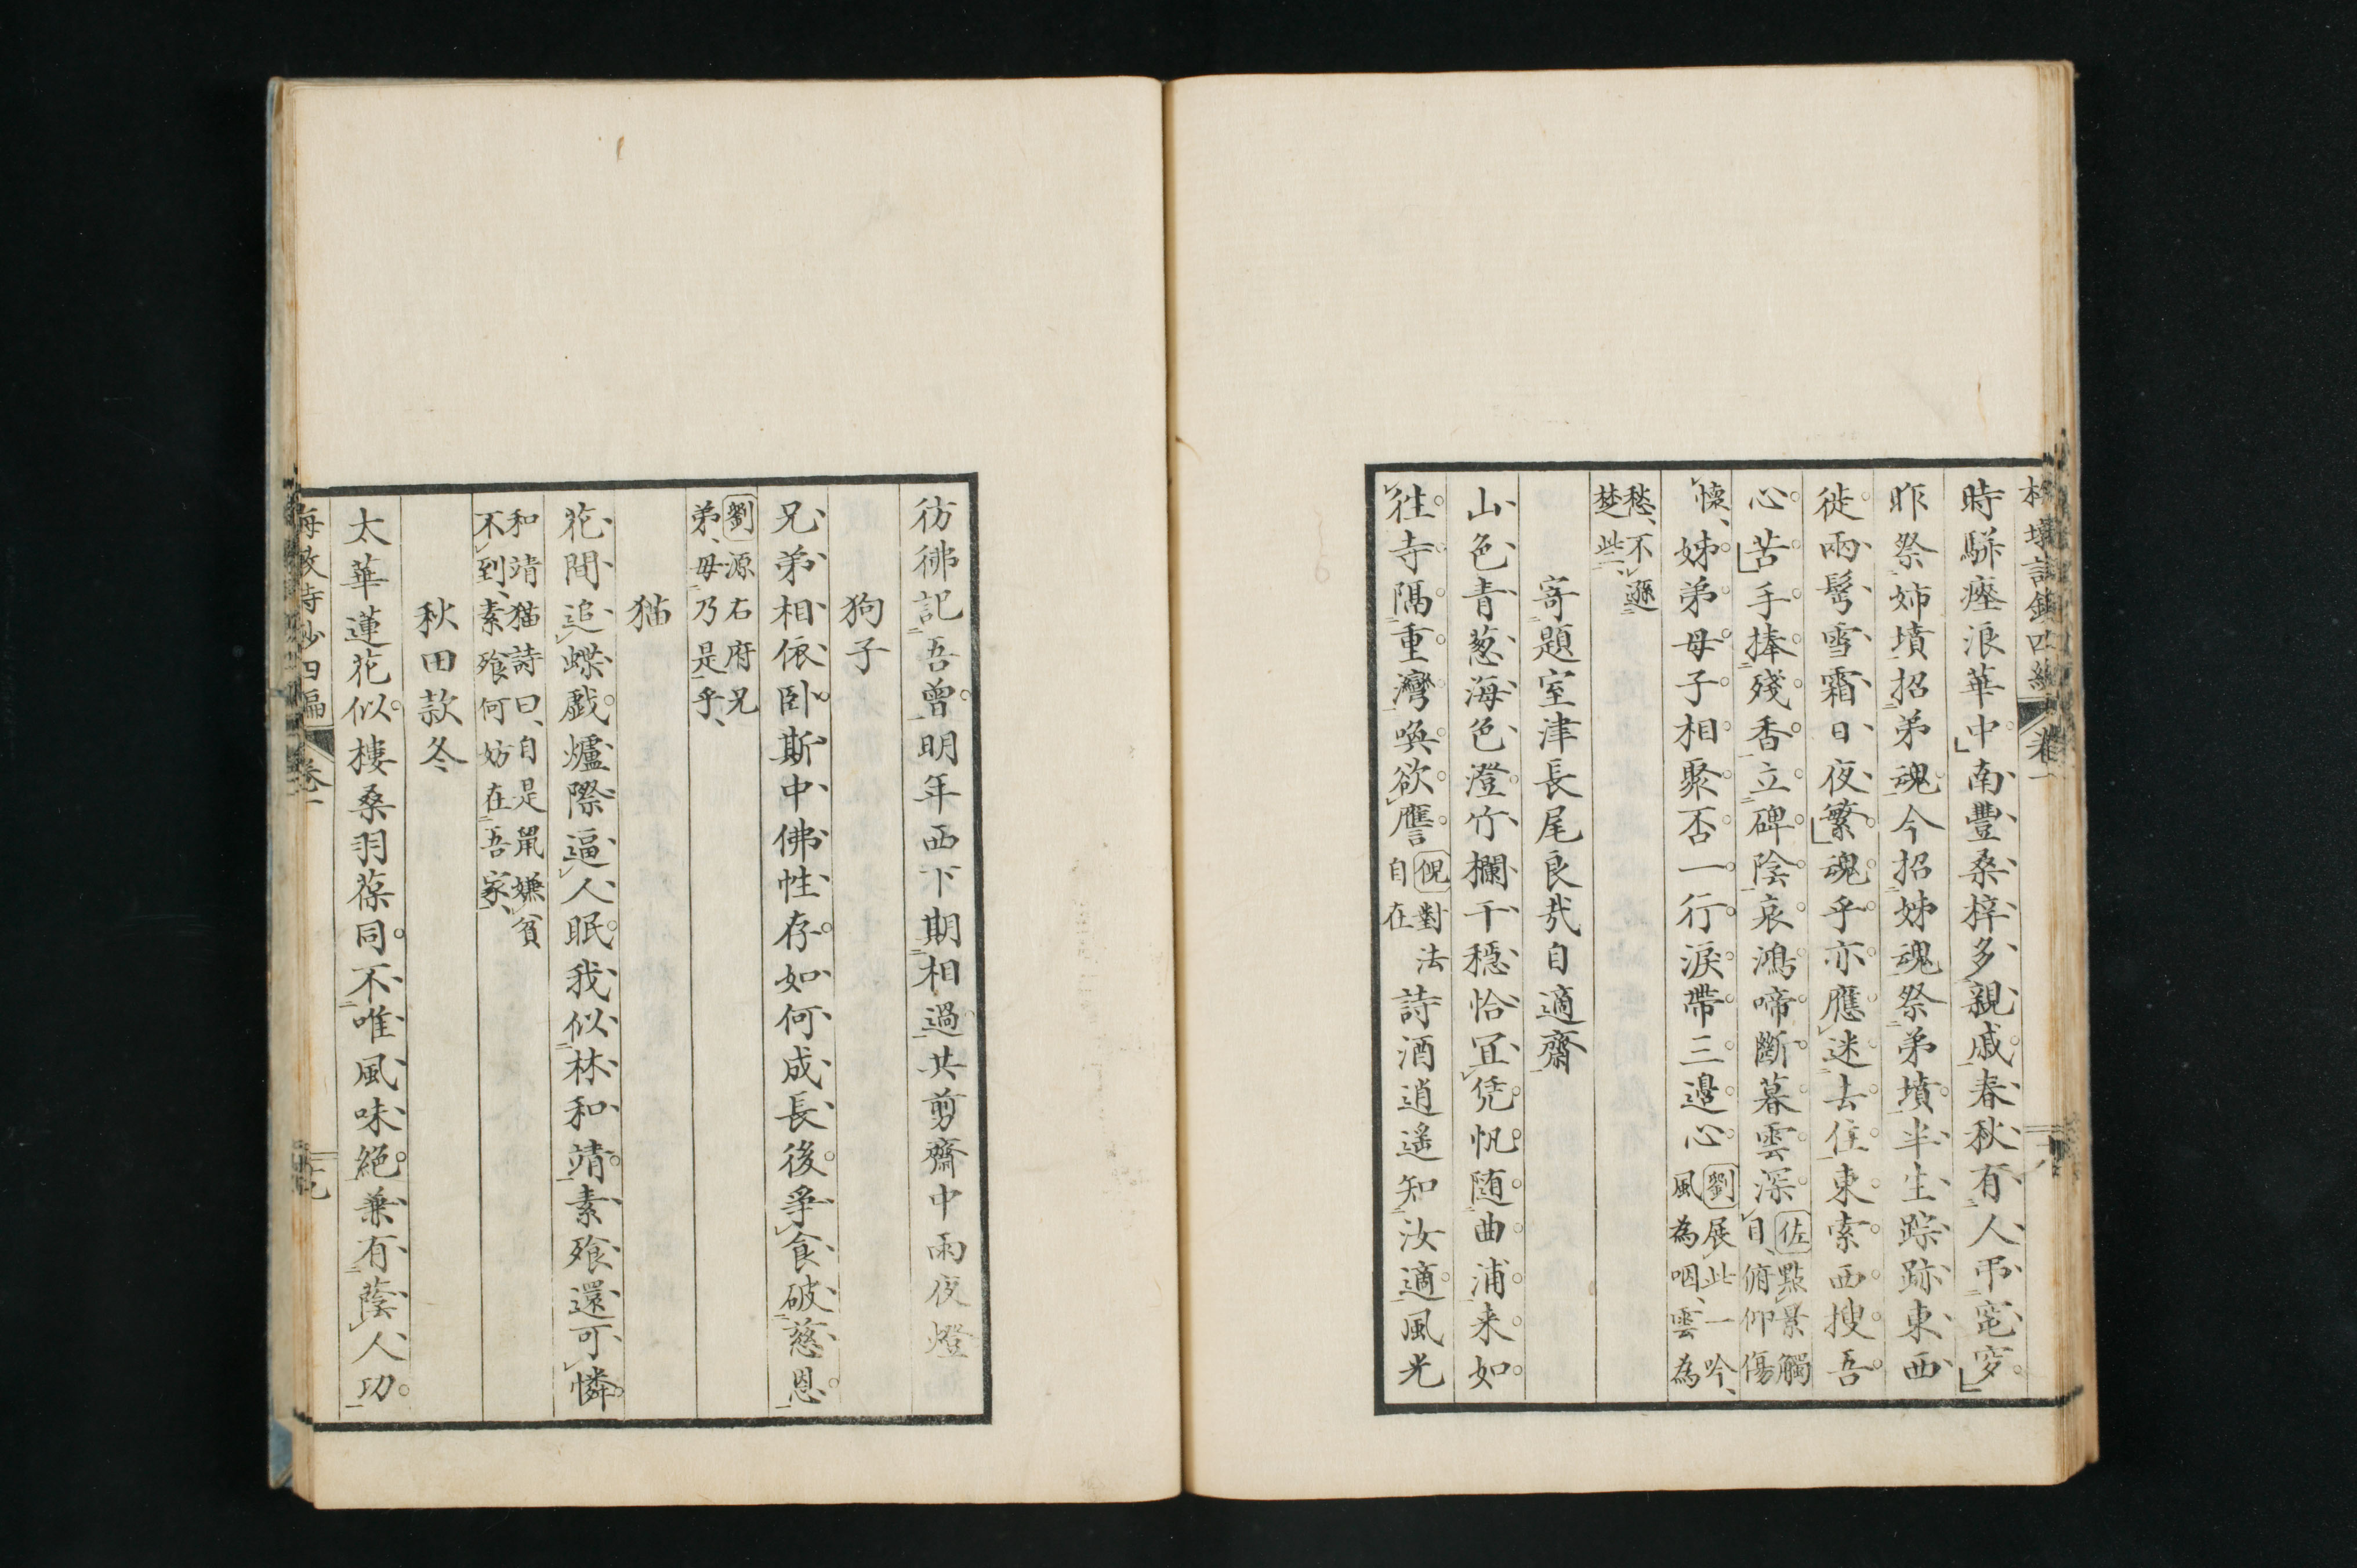 時駢瘞浪華中南豐桑梓多親戚春秋有人弔窀穸
昨祭姉墳招弟魂今招姊魂祭弟墳半生踪跡東西
徙兩髩雪霜日夜繁魂乎亦應迷去住東索西搜吾
心苦手捧殘香立碑陰哀鴻啼斷暮雲深佐點景觸
目俯仰傷
懷姊弟母子相聚否一行淚帶三邊心劉展此一吟
風為咽雲為
愁不遜
楚些
寄題室津長尾良哉自適齋
山色青葱海色澄竹欄干穩恰冝凭帆随曲浦来如
往寺隔重灣喚欲譍倪對法
自在
詩酒逍遥知汝適風光
卷一
彷彿記吾曽明年西下期相過共剪齋中雨夜燈
狗子
兄弟相依卧斯中佛性存如何成長後爭食破慈恩
劉源右府兄
弟毋乃是乎
猫
花間追蝶戯爐際逼人眠我似林和靖素飱還可憐
和靖猫詩曰自是鼠嫌貧
不到素飱何妨在吾家
秋田款冬
太華蓮花似樓桑羽葆同不唯風味絶兼有蔭人功
四編 卷一